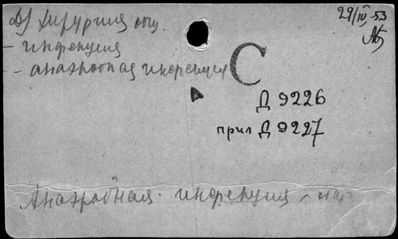 хирургия общ.
29/IV-53
- инфекция
- анаэробная инфекция
С
Д 9226
прил Д 9227
Анаэробная инфекция